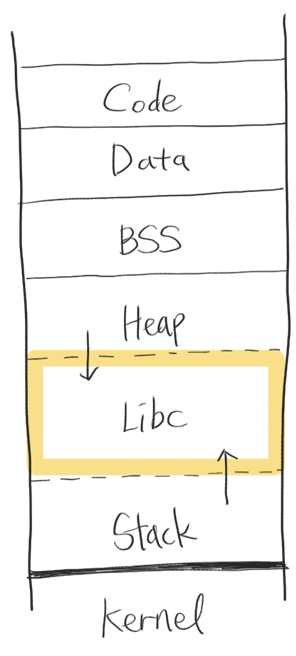 Code
Data
BSS
Heap
Libc
Stack
Kernel